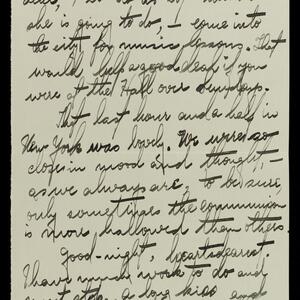 she is going to do, – come into
the city for music lessons. That
would help a good deal if you
were at the Hall over Sundays.
That last hour and a half in
New York was lovely. We were so
close in mood and thought, –
as we always are, to be sure,
only sometimes the communion
is more hallowed than others.
Good-night, heart's dearest.
I have much work to do and
must stop. A long kiss good